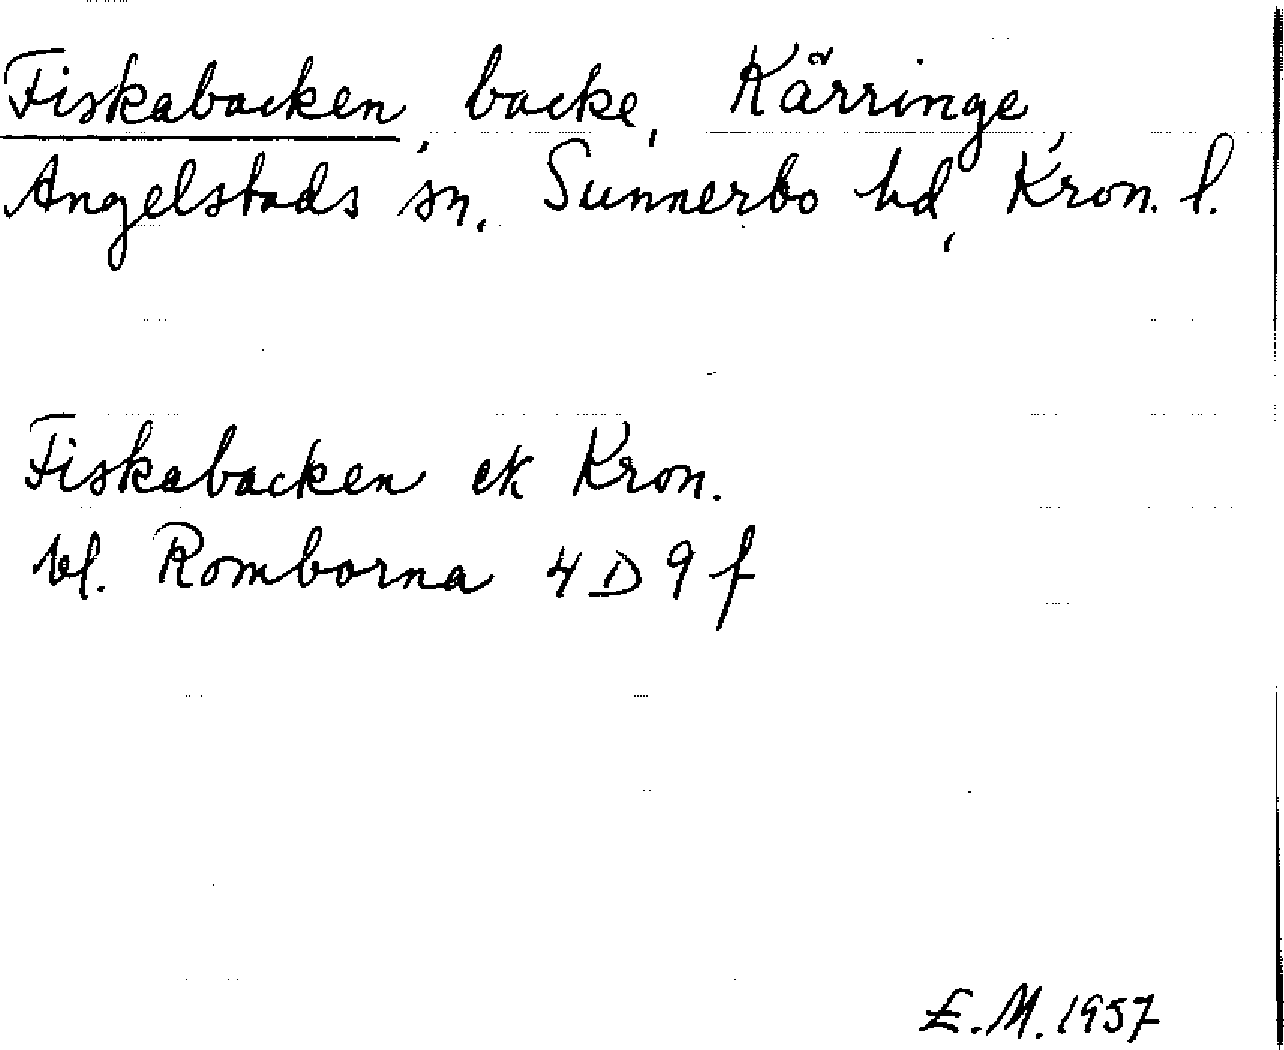 Fiskabacken, backe, Kärringe,
Angelstads sn, Sunnerbo hd, Kron. l.
Fiskabacken ek Kron.
bl. Romborna 4 D 9 f
E.M. 1957